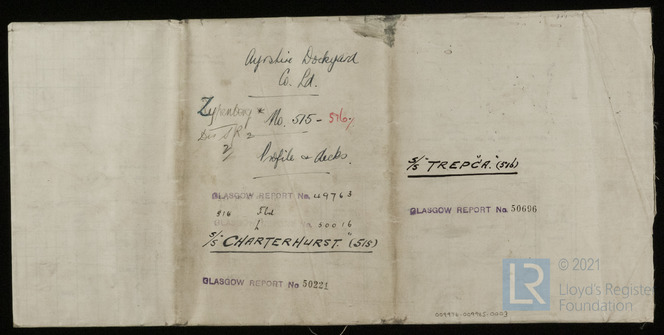 Ayrshire Dockyard
Co. Ld.
No. 515 - 516
Profile & decks.
GLASGOW REPORT No. 49763
516
50016
S/S "CHARTERHURST." (515)
GLASGOW REPORT No 50221
S/S "TREPČA." (516)
GLASGOW REPORT No. 50696
009976-009985-0003
LR
© 2021
Lloyd's Register
Foundation